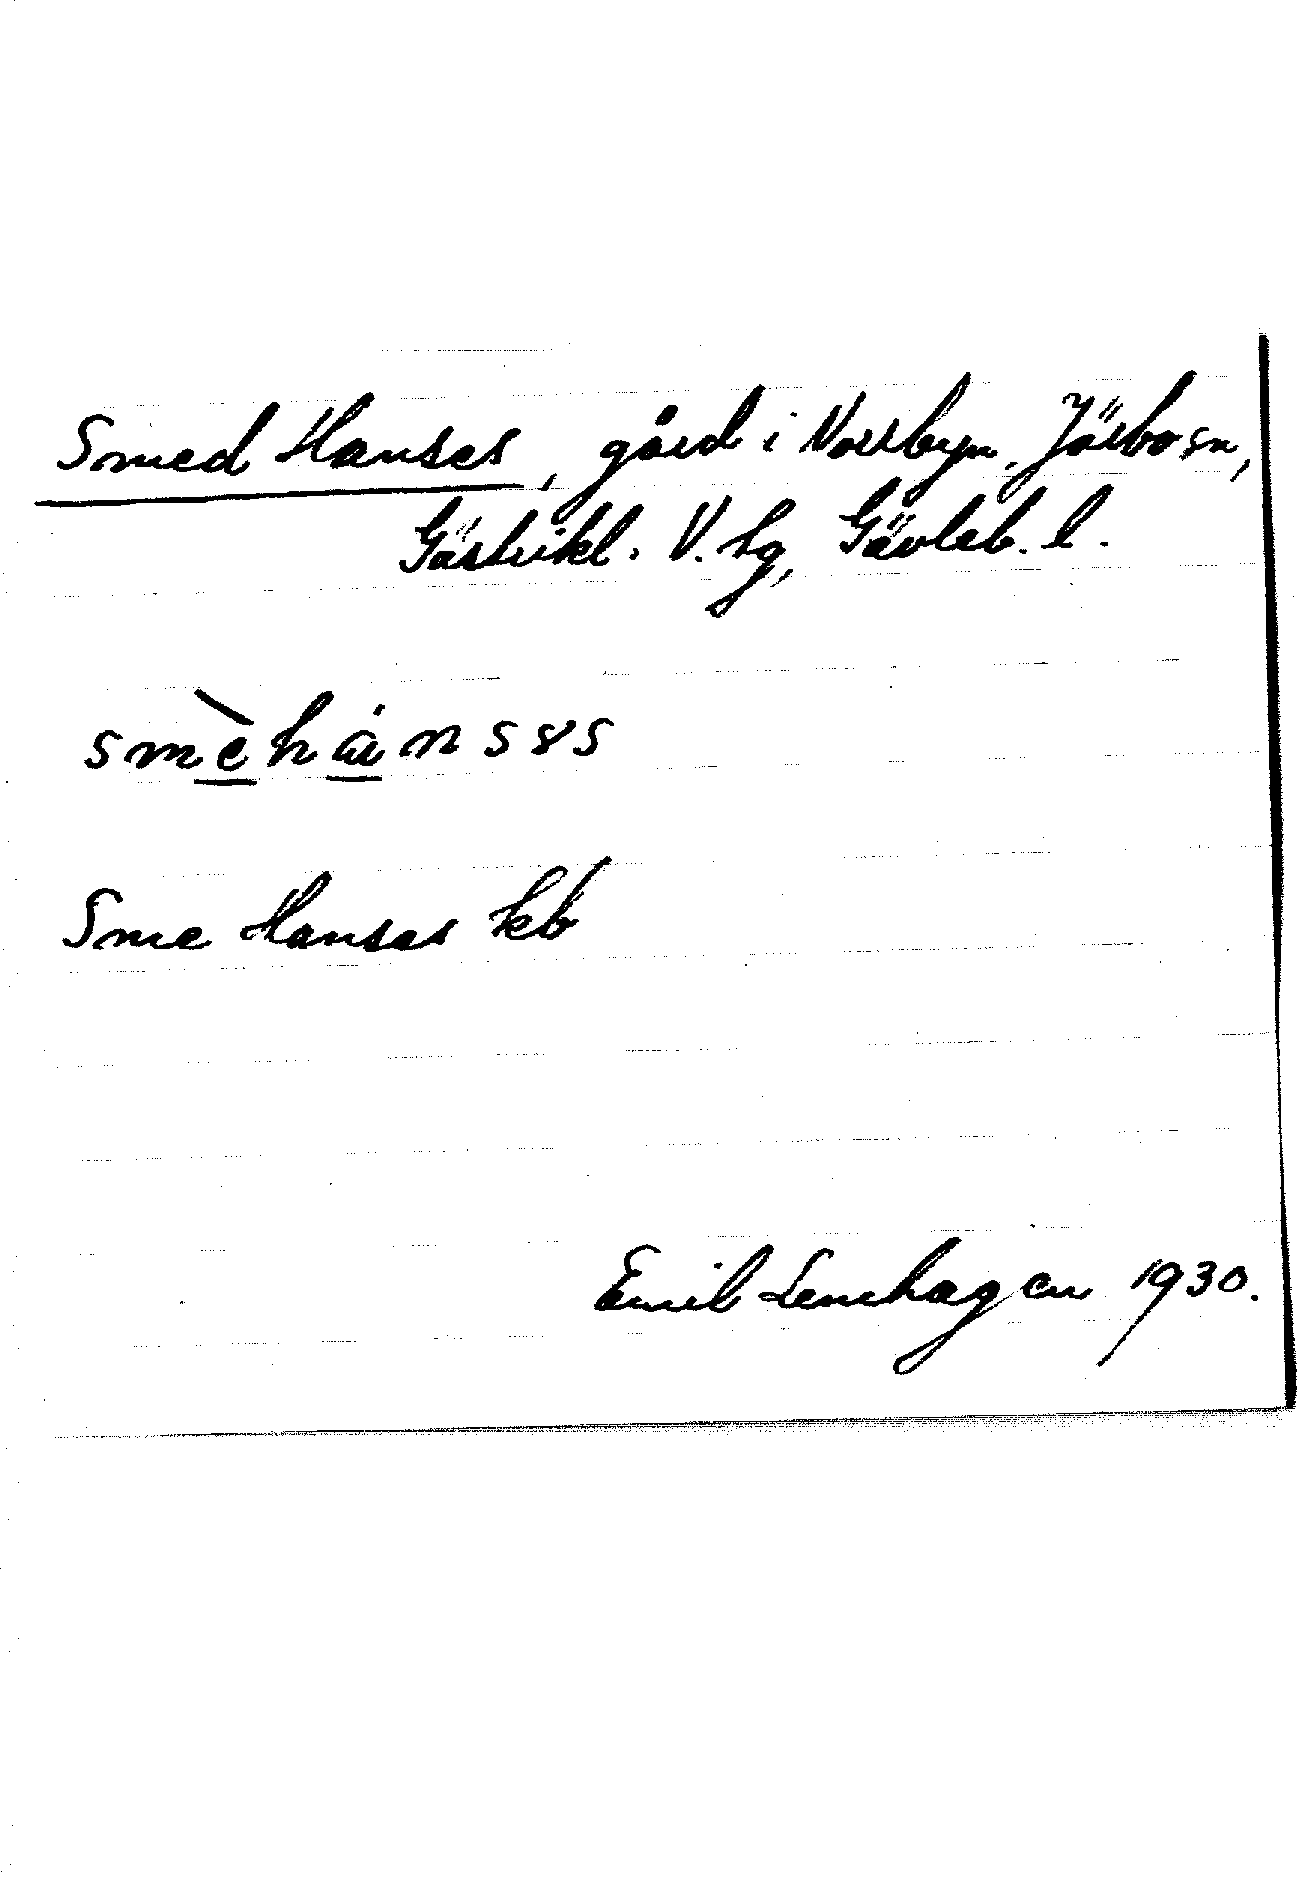 Smed Hanses, gård i Norrbyn, Järbo sn,
Gästrikl. V. hg, Gävleb. l.
smèhánsəs
Sme Hanses kb
Emil Lenhagen 1930.